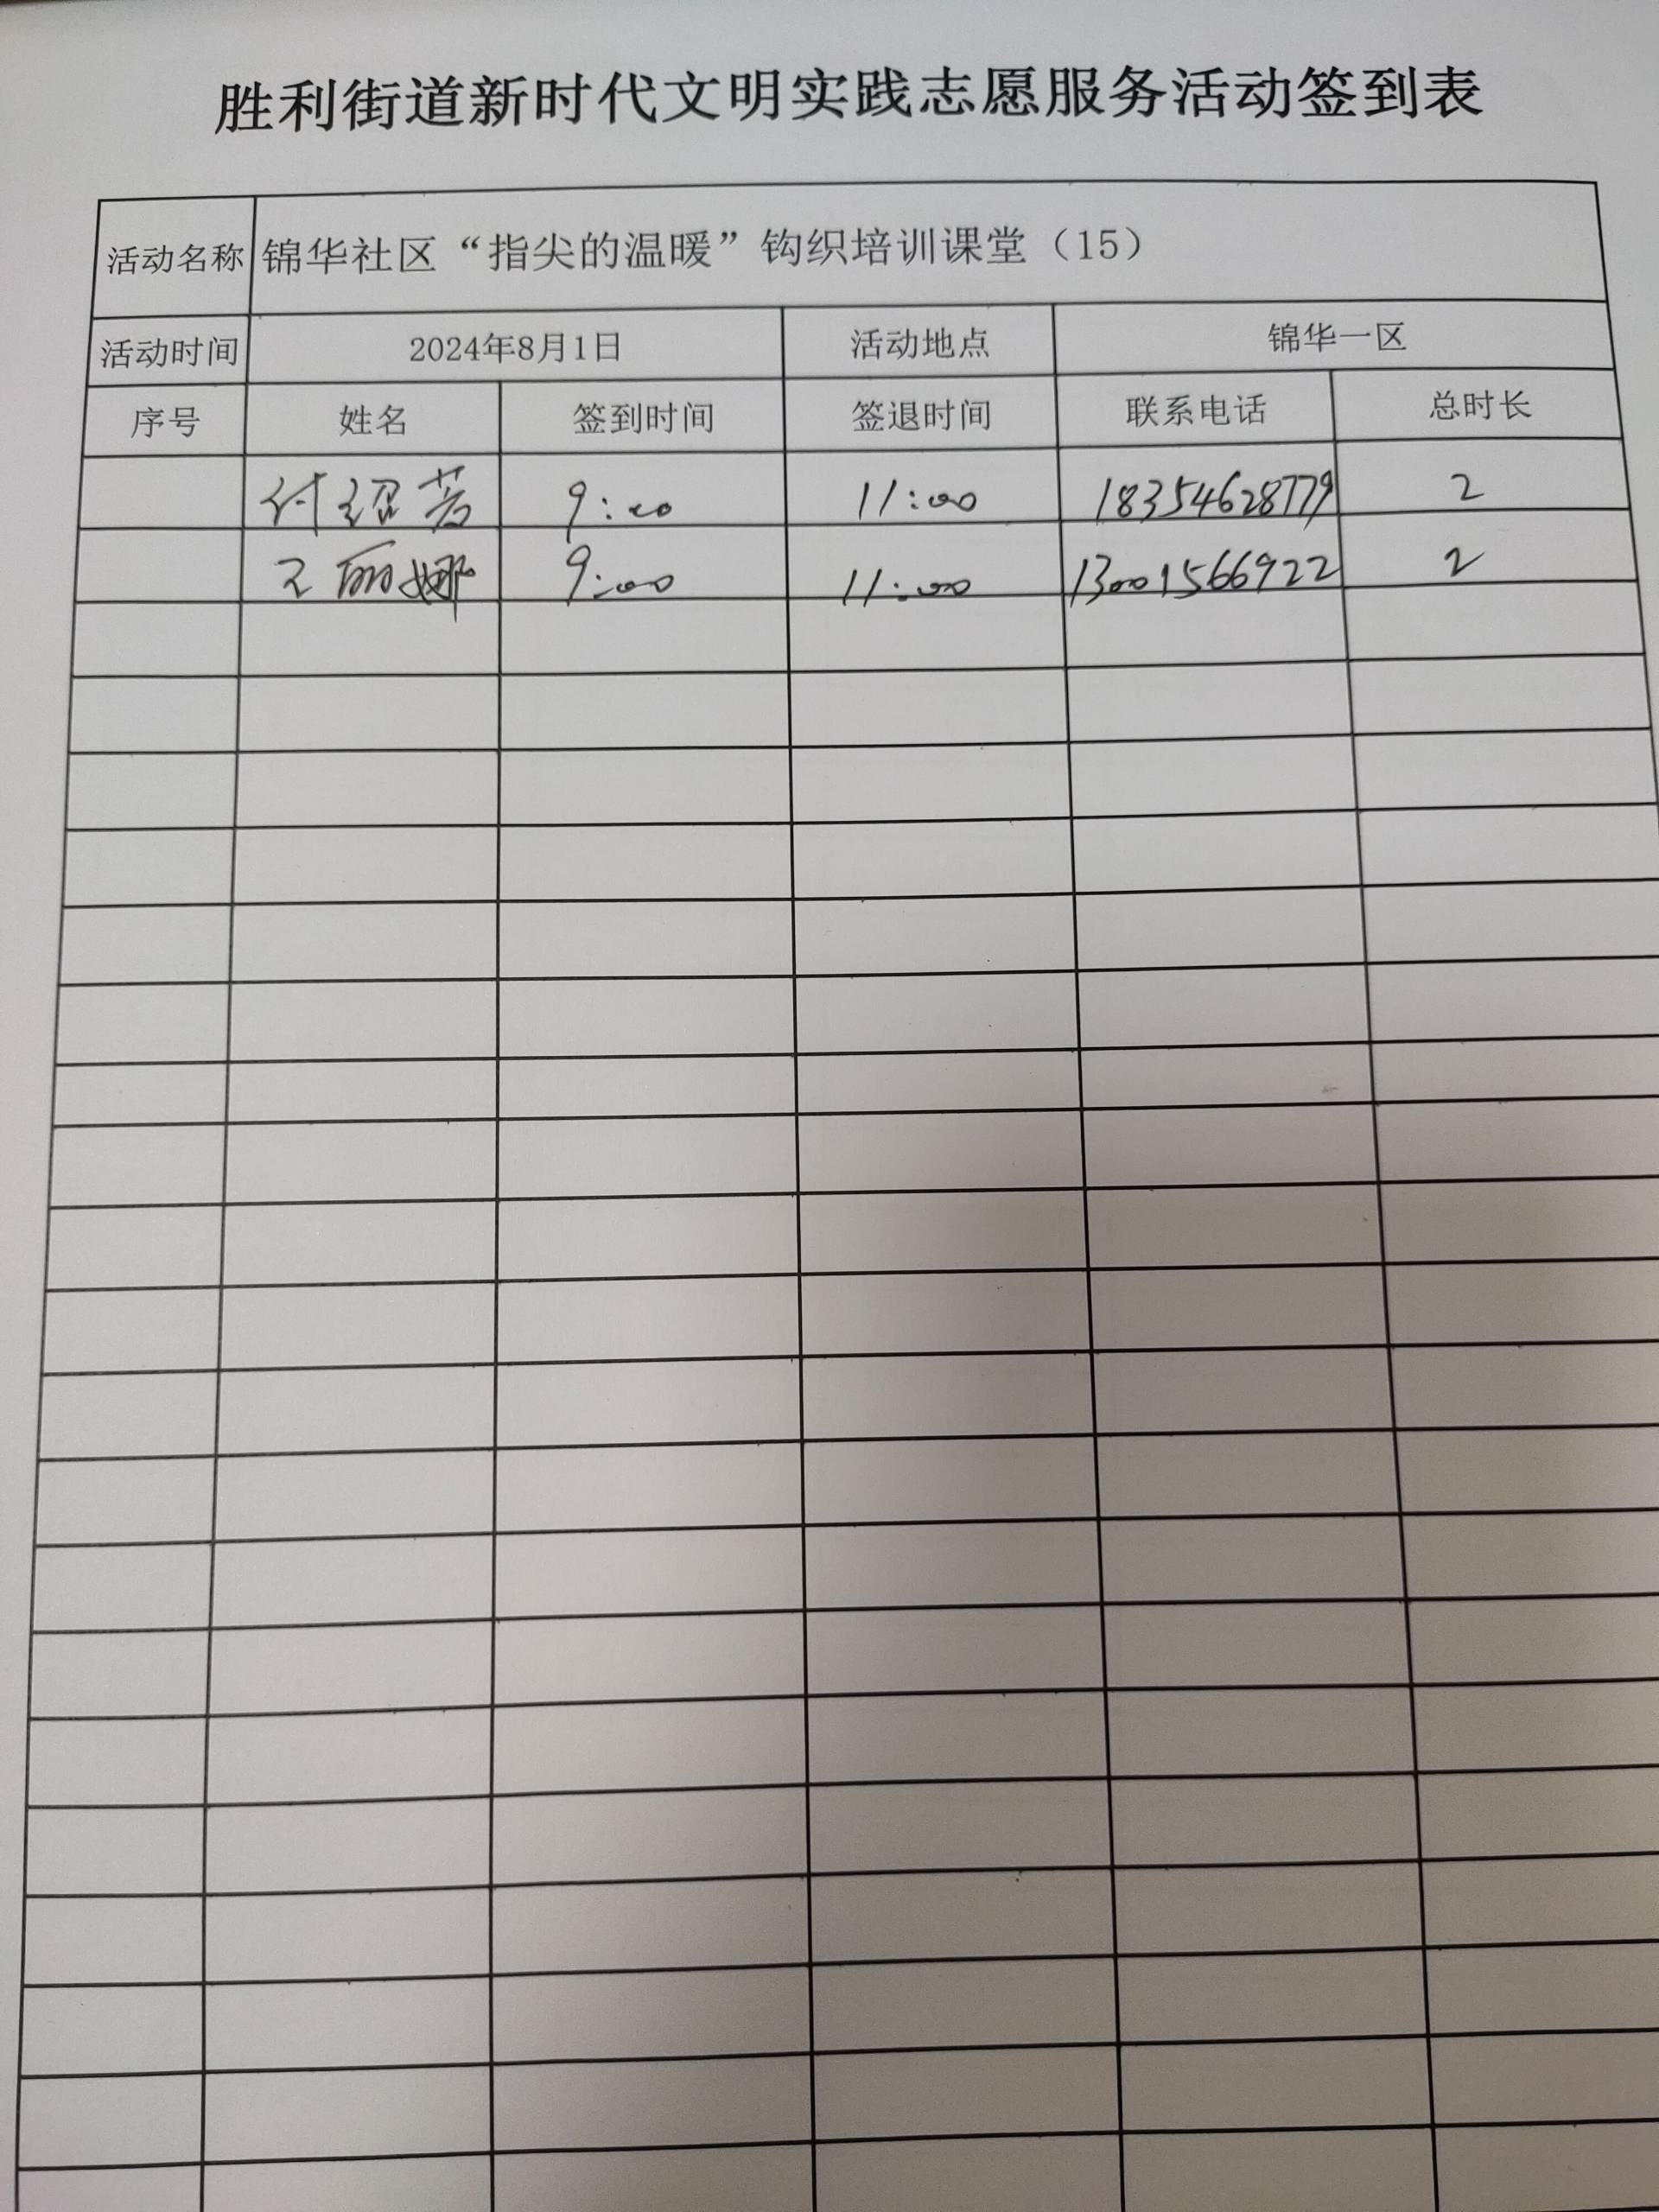 胜利街道新时代文明实践志愿服务活动签到表
活动名称 锦华社区“指尖的温暖”钩织培训课堂（15）
活动时间 2024年8月1日 活动地点 锦华一区
序号 姓名 签到时间 签退时间 联系电话 总时长
付绍芳 9:00 11:00 18354628779 2
王丽娜 9:00 11:00 13001566922 2